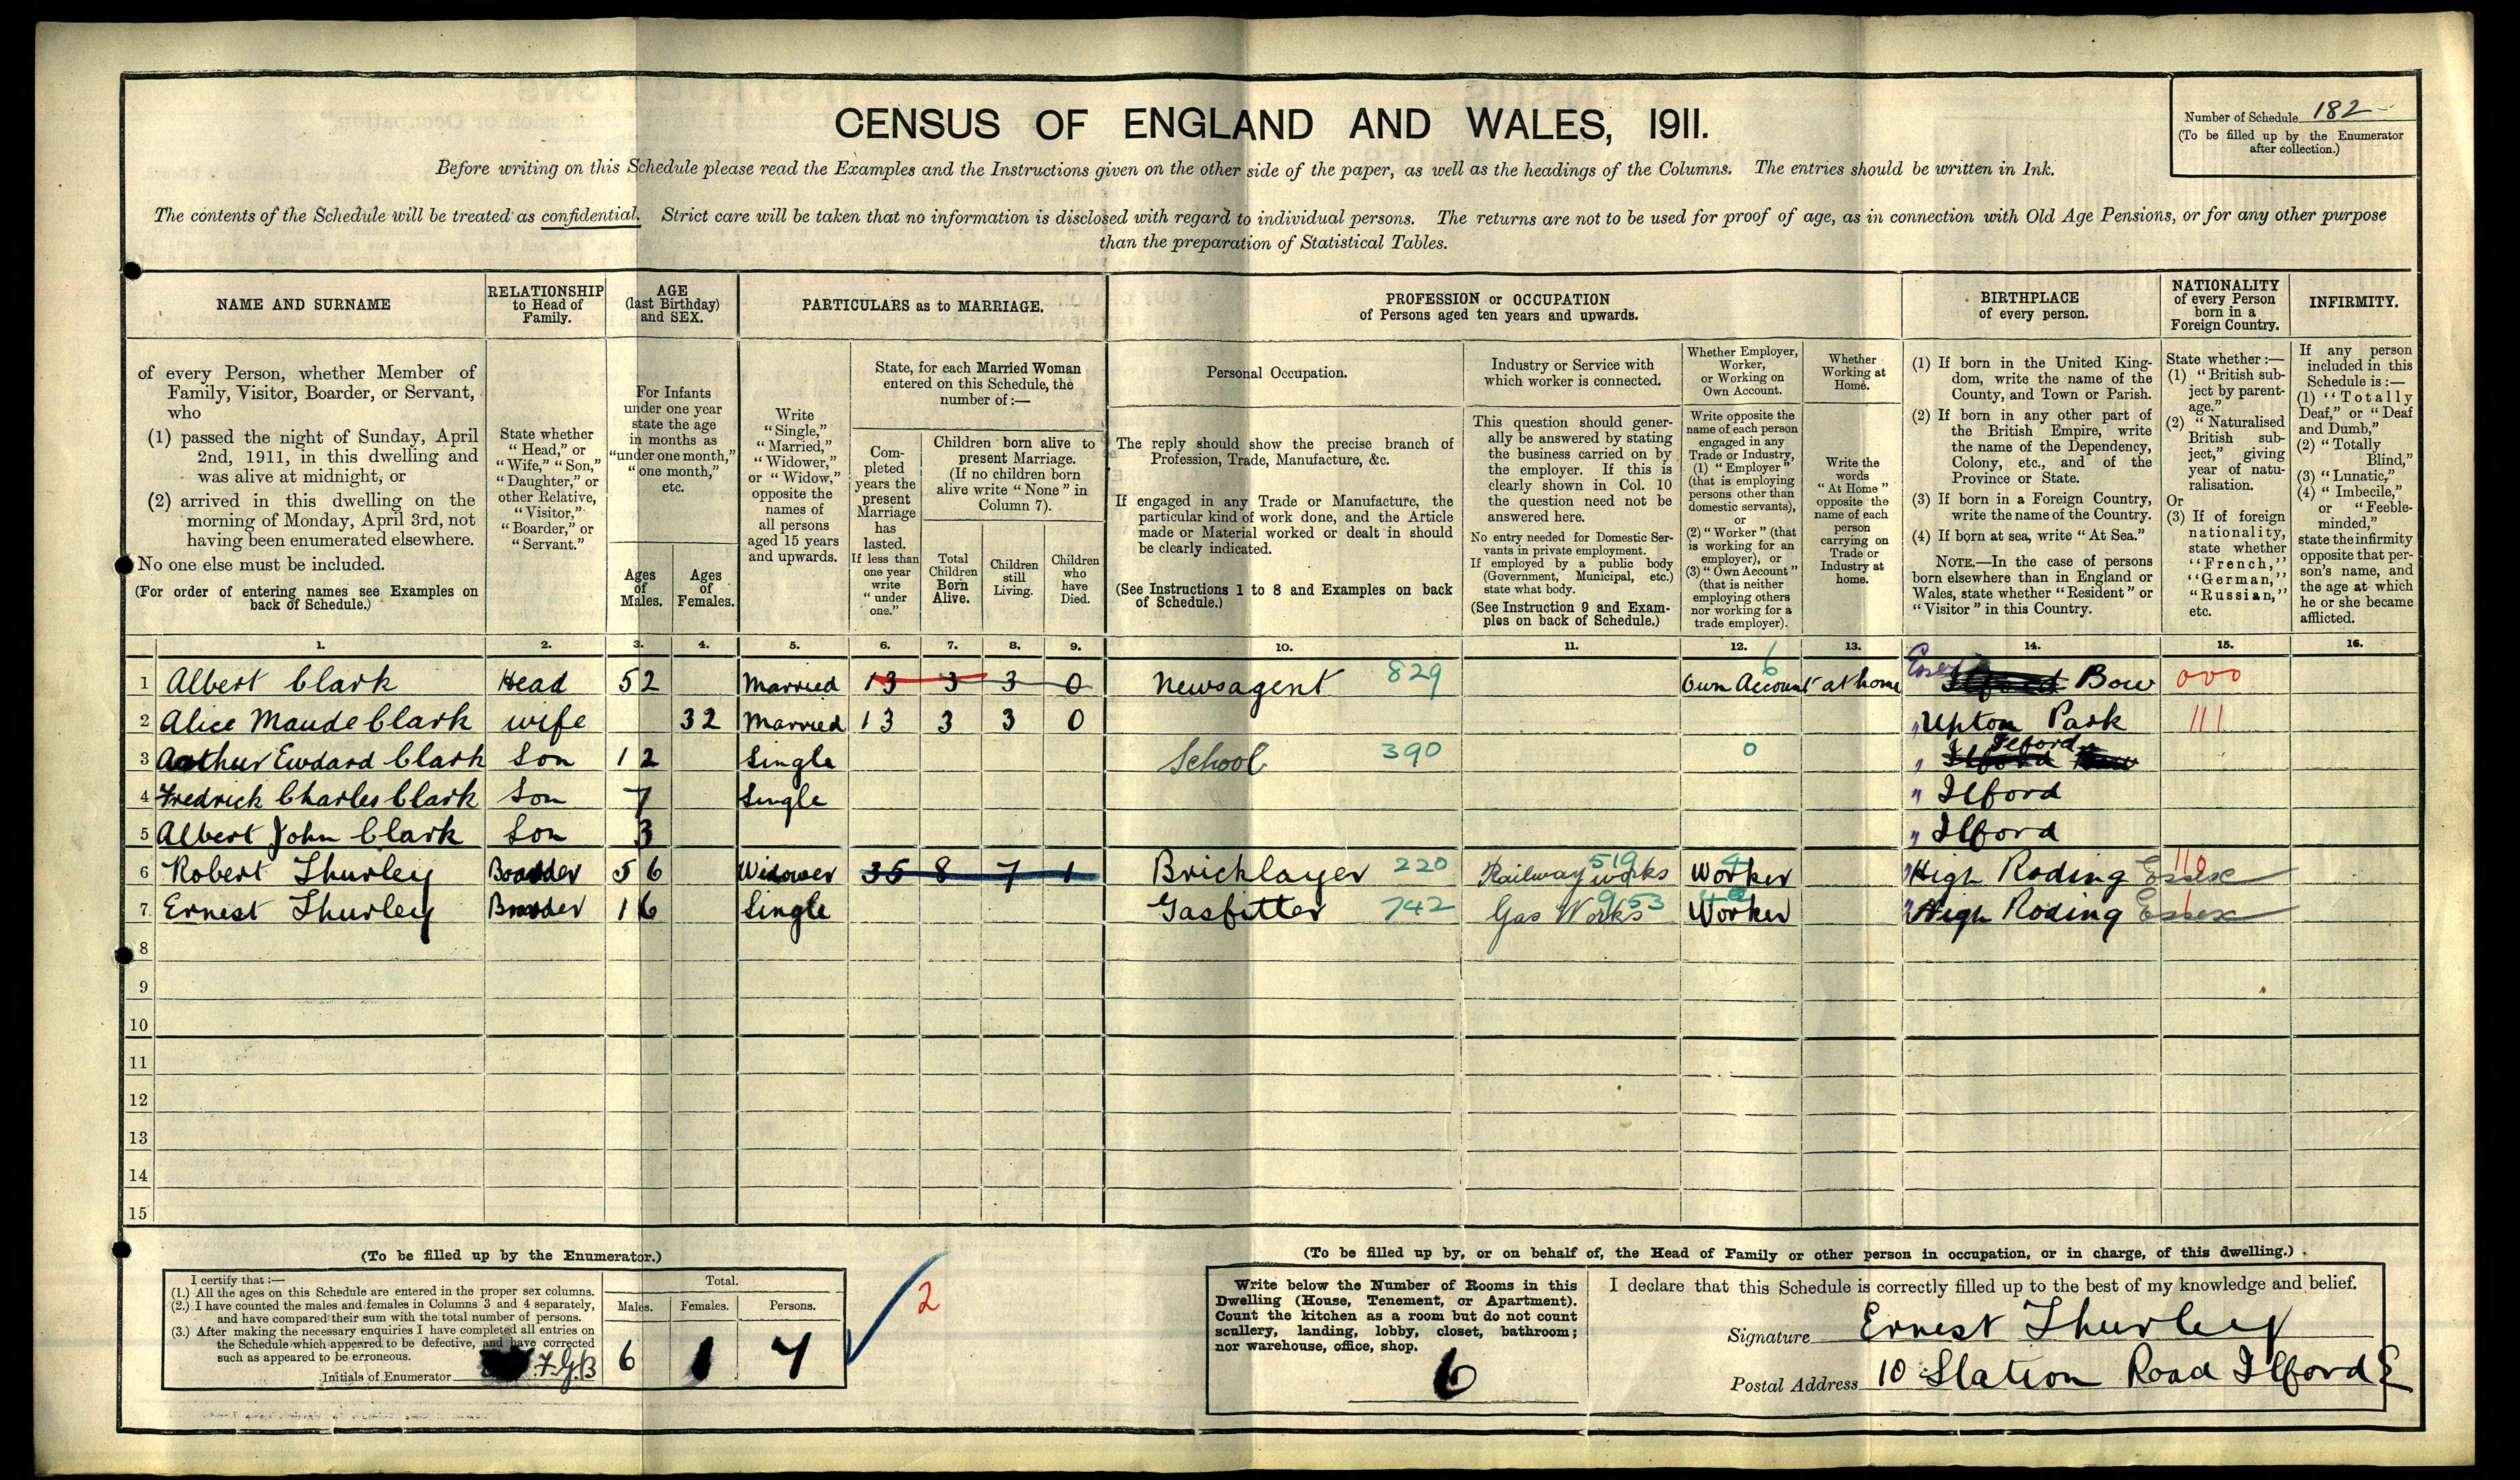 CENSUS OF ENGLAND AND WALES, 1911.
Number of Schedule 182
(To be filled up by the Enumerator
after collection.)
Before writing on this Schedule please read the Examples and the Instructions given on the other side of the paper, as well as the headings of the Columns. The entries should be written in Ink.
The contents of the Schedule will be treated as confidential. Strict care will be taken that no information is disclosed with regard to individual persons. The returns are not to be used for proof of age, as in connection with Old Age Pensions, or for any other purpose
than the preparation of Statistical Tables.
NAME AND SURNAME
of every Person, whether Member of
Family, Visitor, Boarder, or Servant,
who
(1) passed the night of Sunday, April
2nd, 1911, in this dwelling and
was alive at midnight, or
(2) arrived in this dwelling on the
morning of Monday, April 3rd, not
having been enumerated elsewhere.
No one else must be included.
(For order of entering names see Examples on
back of Schedule.)
RELATIONSHIP
to Head of
Family.
State whether
"Head," or
"Wife," "Son,"
"Daughter," or
other Relative,
"Visitor,"
"Boarder," or
"Servant."
AGE
(last Birthday)
and SEX.
For Infants
under one year
state the age
in months as
"under one month,"
"one month,"
etc.
Ages
of
Males.
Ages
of
Females.
PARTICULARS as to MARRIAGE.
Write
"Single,"
"Married,"
"Widower,"
or "Widow,"
opposite the
names of
all persons
aged 15 years
and upwards.
State, for each Married Woman
entered on this Schedule, the
number of:—
Com-
pleted
years the
present
Marriage
has
lasted.
If less than
one year
write
"under
one."
Children born alive to
present Marriage.
(If no children born
alive write "None" in
Column 7).
Total
Children
Born
Alive.
Children
still
Living.
Children
who
have
Died.
PROFESSION or OCCUPATION
of Persons aged ten years and upwards.
Personal Occupation.
The reply should show the precise branch of
Profession, Trade, Manufacture, &c.
If engaged in any Trade or Manufacture, the
particular kind of work done, and the Article
made or Material worked or dealt in should
be clearly indicated.
(See Instructions 1 to 8 and Examples on back
of Schedule.)
Industry or Service with
which worker is connected.
This question should gener-
ally be answered by stating
the business carried on by
the employer. If this is
clearly shown in Col. 10
the question need not be
answered here.
No entry needed for Domestic Ser-
vants in private employment.
If employed by a public body
(Government, Municipal, etc.)
state what body.
(See Instruction 9 and Exam-
ples on back of Schedule.)
Whether Employer,
Worker,
or Working on
Own Account.
Write opposite the
name of each person
engaged in any
Trade or Industry,
(1) "Employer"
(that is employing
persons other than
domestic servants),
or
(2) "Worker" (that
is working for an
employer), or
(3) "Own Account"
(that is neither
employing others
nor working for a
trade employer).
Whether
Working at
Home.
Write the
words
"At Home"
opposite the
name of each
person
carrying on
Trade or
Industry at
home.
BIRTHPLACE
of every person.
(1) If born in the United King-
dom, write the name of the
County, and Town or Parish.
(2) If born in any other part of
the British Empire, write
the name of the Dependency,
Colony, etc., and of the
Province or State.
(3) If born in a Foreign Country,
write the name of the Country.
(4) If born at sea, write "At Sea."
NOTE.—In the case of persons
born elsewhere than in England or
Wales, state whether "Resident" or
"Visitor" in this Country.
NATIONALITY
of every Person
born in a
Foreign Country.
State whether:—
(1) "British sub-
ject by parent-
age."
(2) "Naturalised
British sub-
ject," giving
year of natu-
ralisation.
Or
(3) If of foreign
nationality,
state whether
"French,"
"German,"
"Russian,"
etc.
INFIRMITY.
If any person
included in this
Schedule is:—
(1) "Totally
Deaf," or "Deaf
and Dumb,"
(2) "Totally
Blind,"
(3) "Lunatic,"
(4) "Imbecile,"
or "Feeble-
minded,"
state the infirmity
opposite that per-
son's name, and
the age at which
he or she became
afflicted.
1. 2. 3. 4. 5. 6. 7. 8. 9. 10. 11. 12. 13. 14. 15. 16.
1 Albert Clark Head 52 Married 13 3 3 0 Newsagent 829 Own Account 6 at home Essex Ilford Bow 000
2 Alice Maude Clark wife 32 Married 13 3 3 0 " Upton Park 111
3 Arthur Ewdard Clark Son 12 Single School 390 0 " Ilford Ilford
4 Fredrick Charles Clark Son 7 Single " Ilford
5 Albert John Clark Son 3 " Ilford
6 Robert Thurley Boarder 56 Widower 35 8 7 1 Bricklayer 220 Railway works 519 Worker " High Roding Essex 110
7 Ernest Thurley Boarder 16 Single Gasfitter 742 Gas Works 953 Worker " High Roding Essex
8
9
10
11
12
13
14
15
(To be filled up by the Enumerator.)
I certify that:—
(1.) All the ages on this Schedule are entered in the proper sex columns.
(2.) I have counted the males and females in Columns 3 and 4 separately,
and have compared their sum with the total number of persons.
(3.) After making the necessary enquiries I have completed all entries on
the Schedule which appeared to be defective, and have corrected
such as appeared to be erroneous.
Initials of Enumerator F.G.B
Total.
Males. Females. Persons.
6 1 7
2
(To be filled up by, or on behalf of, the Head of Family or other person in occupation, or in charge, of this dwelling.)
Write below the Number of Rooms in this
Dwelling (House, Tenement, or Apartment).
Count the kitchen as a room but do not count
scullery, landing, lobby, closet, bathroom;
nor warehouse, office, shop.
6
I declare that this Schedule is correctly filled up to the best of my knowledge and belief.
Signature Ernest Thurley
Postal Address 10 Station Road Ilford E